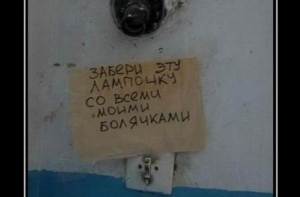 ЗАБЕРИ ЭТУ
ЛАМПОЧКУ
СО ВСЕМИ
МОИМИ
БОЛЯЧКАМИ